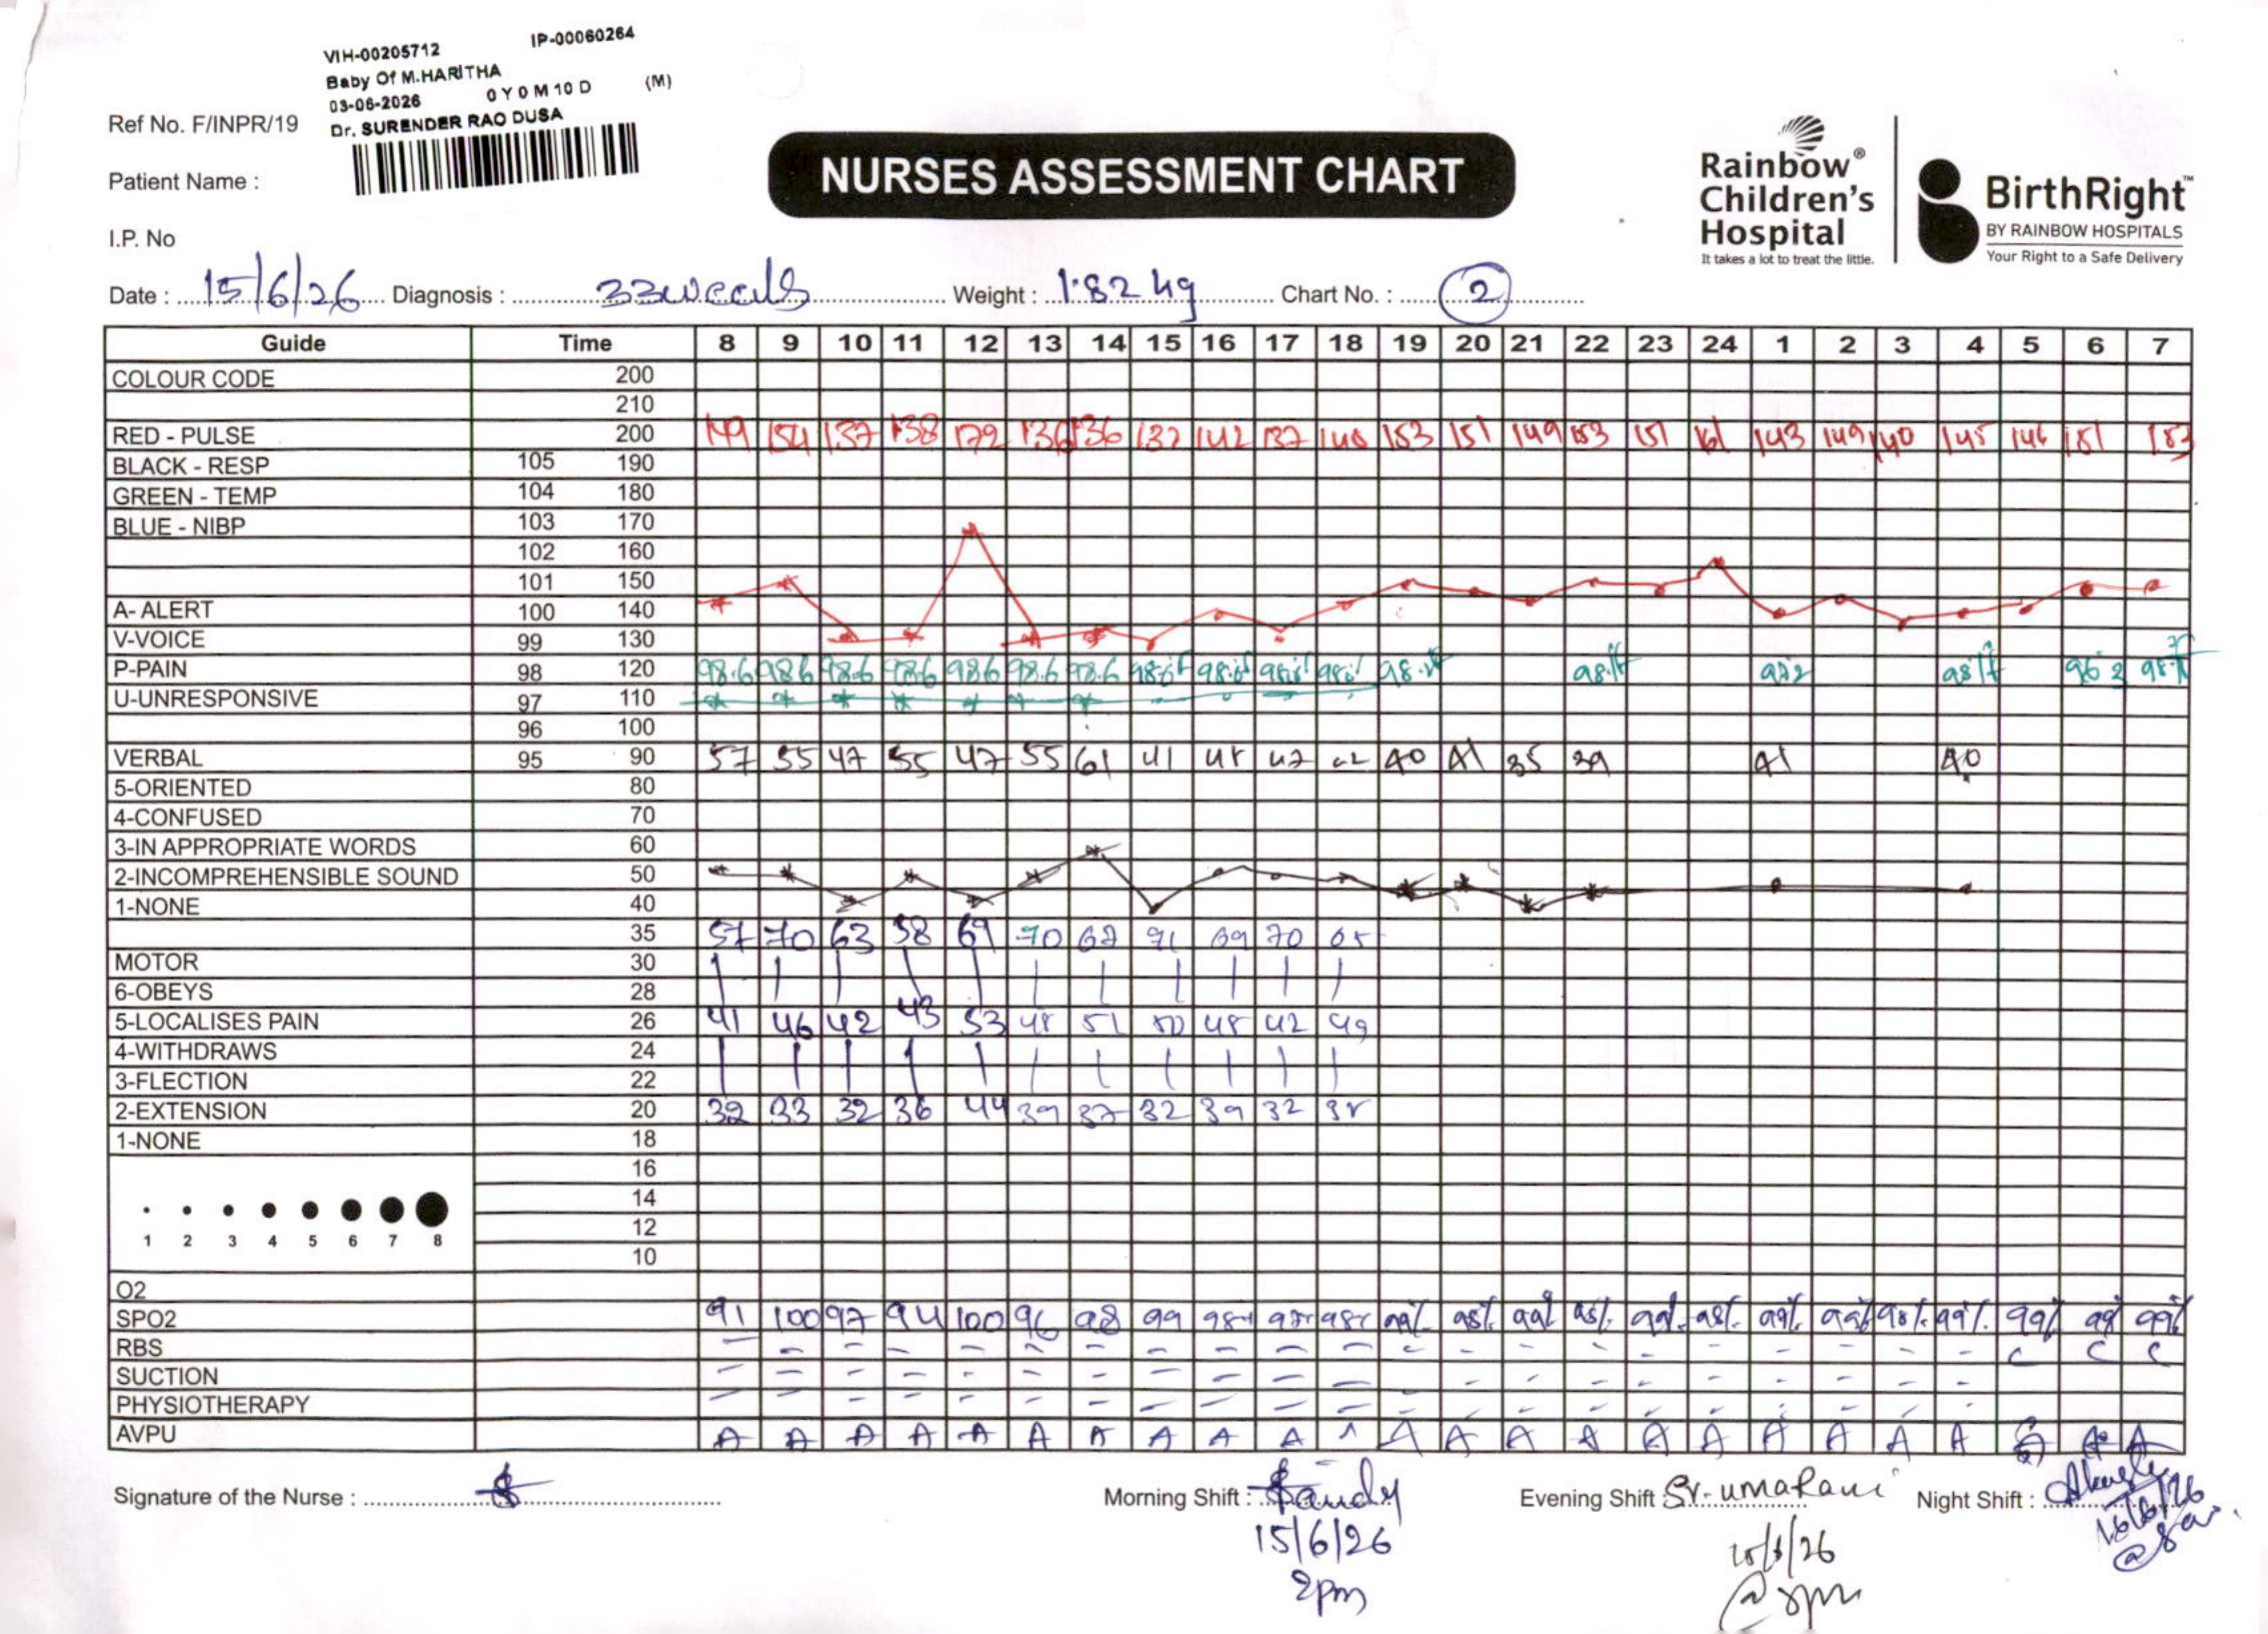 VIH-00205712 IP-00060264
Baby Of M.HARITHA
03-06-2026 0 Y 0 M 10 D (M)
Dr. SURENDER RAO DUSA
Ref No. F/INPR/19
Patient Name :
I.P. No
NURSES ASSESSMENT CHART
Rainbow®
Children's
Hospital
It takes a lot to treat the little.
BirthRight™
BY RAINBOW HOSPITALS
Your Right to a Safe Delivery
Date : 15/6/26 Diagnosis : 33weeks Weight : 1.82 kg Chart No. : 2
Guide Time 8 9 10 11 12 13 14 15 16 17 18 19 20 21 22 23 24 1 2 3 4 5 6 7
COLOUR CODE 200
210
RED - PULSE 200 149 154 137 138 172 136 136 132 142 137 148 153 151 149 153 151 161 143 149 140 145 146 151 153
BLACK - RESP 105 190
GREEN - TEMP 104 180
BLUE - NIBP 103 170
102 160
101 150
A- ALERT 100 140
V-VOICE 99 130
P-PAIN 98 120 98.6 98.6 98.6 98.6 98.6 98.6 98.6
U-UNRESPONSIVE 97 110
96 100
VERBAL 95 90 57 55 47 55 47 55 61 41 48 47 40 41 35 39 41 40
5-ORIENTED 80
4-CONFUSED 70
3-IN APPROPRIATE WORDS 60
2-INCOMPREHENSIBLE SOUND 50
1-NONE 40
35 57 70 63 58 69 70 67 71 69 70 65
MOTOR 30
6-OBEYS 28
5-LOCALISES PAIN 26 41 46 42 43 53 48 51 50 48 42 49
4-WITHDRAWS 24
3-FLECTION 22
2-EXTENSION 20 32 33 32 36 44 39 37 32 39 32 38
1-NONE 18
16
14
12
10
1 2 3 4 5 6 7 8
O2
SPO2 91 100 97 94 100 96 98 99 98% 97% 98% 99% 98% 99% 98% 99% 98% 99% 99% 98% 99% 99% 99 99%
RBS - - - - - - - - - - - - - - - - - - - - -
SUCTION - - - - - - - - - - - - - - - - - - - -
PHYSIOTHERAPY - - - - - - - - - - - - - - - - - - - -
AVPU A A A A A A A A A A A A A A A A A A A A A A A A
Signature of the Nurse : Morning Shift : Sandy Evening Shift Sr. umaRani Night Shift :
15/6/26 15/6/26 16/6/26
2pm @ 8pm @ 8am